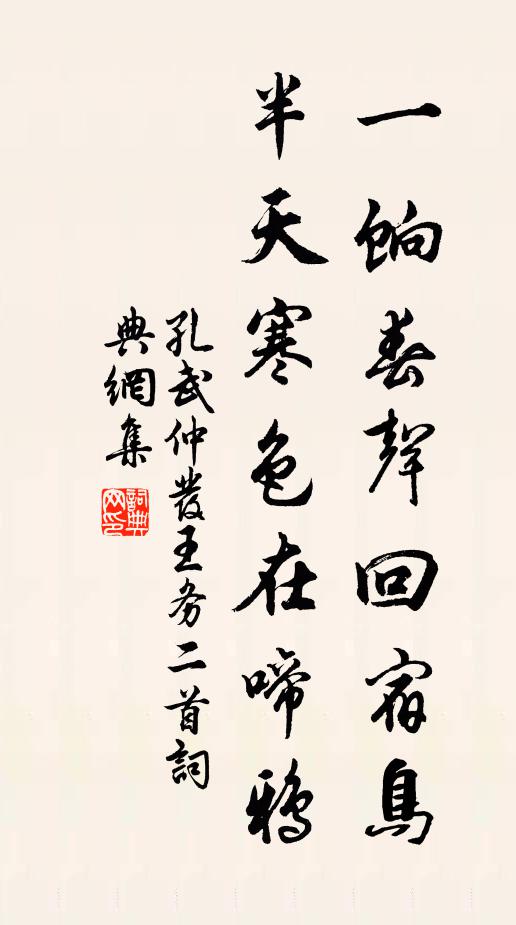 一餉春聲回宿鳥
半天寒色在啼鴉
孔武仲發王务二首詞
典網集
詞典網印